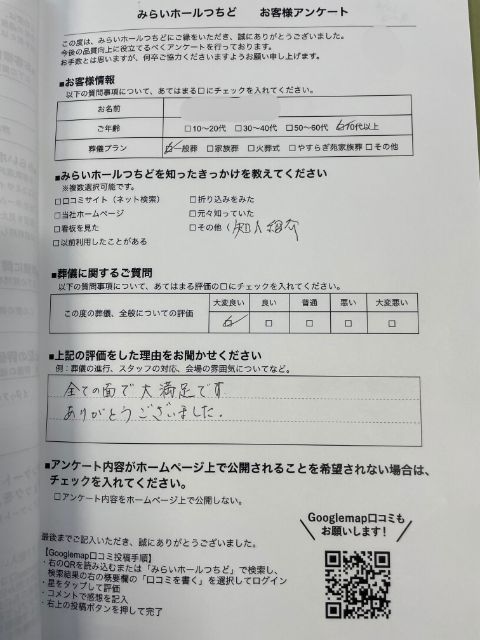 みらいホールつちど　お客様アンケート
この度は、みらいホールつちどにご縁をいただき、誠にありがとうございました。
今後の品質向上に役立てるべくアンケートを行っております。
お手数とは思いますが、何卒ご協力くださいますようお願い申し上げます。
■お客様情報
以下の質問事項について、あてはまる□にチェックを入れてください。
お名前
ご年齢 □10～20代 □30～40代 □50～60代 ☑70代以上
葬儀プラン ☑一般葬 □家族葬 □火葬式 □やすらぎ苑家族葬 □その他
■みらいホールつちどを知ったきっかけを教えてください
※複数選択可能です。
□口コミサイト（ネット検索） □折り込みをみた
□当社ホームページ □元々知っていた
□看板を見た □その他（知人紹介
□以前利用したことがある
■葬儀に関するご質問
以下の質問事項について、あてはまる評価の□にチェックを入れてください。
大変良い 良い 普通 悪い 大変悪い
この度の葬儀、全般についての評価 ☑ □ □ □ □
■上記の評価をした理由をお聞かせください
例：葬儀の進行、スタッフの対応、会場の雰囲気についてなど。
全ての面で大満足です
ありがとうございました.
■アンケート内容がホームページ上で公開されることを希望されない場合は、
チェックを入れてください。
□アンケート内容をホームページ上で公開しない。
Googlemap口コミも
お願いします！
最後までご記入いただき、誠にありがとうございました。
【Googlemap口コミ投稿手順】
・右のQRを読み込むまたは「みらいホールつちど」で検索し、
検索結果の右の概要欄の「口コミを書く」を選択してログイン
・星をタップして評価
・コメントで感想を記入
・右上の投稿ボタンを押して完了